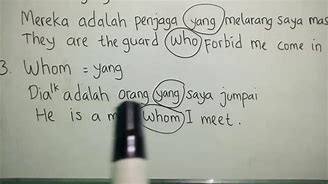 Mereka adalah penjaga yang melarang saya mas
They are the guard who Forbid me come in
3. Whom = yang
Dia lk adalah orang yang saya jumpai
He is a m whom I meet.